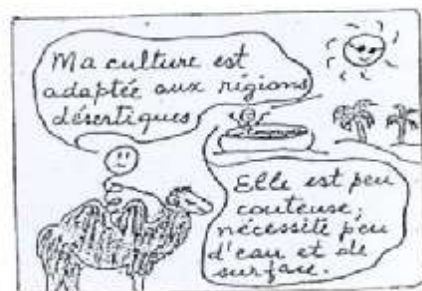 Ma culture est
adaptée aux régions
désertiques
Elle est peu
couteuse,
nécessite peu
d'eau et de
surface.